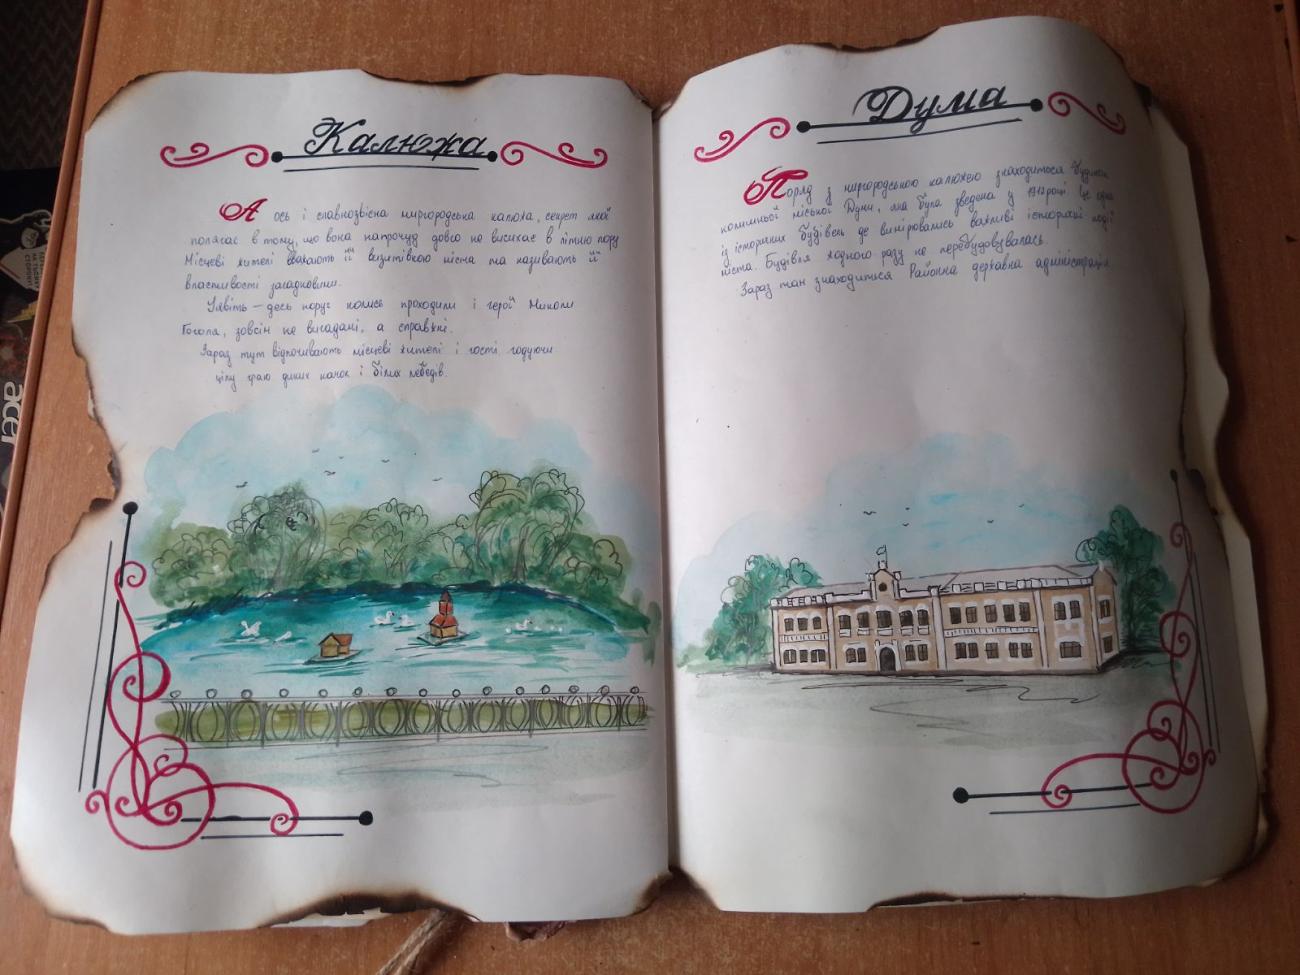 Калюжа
А ось і славнозвісна миргородська калюжа, секрет якої
полягає в тому, що вона напрочуд довго не висихає в літню пору
Місцеві жителі вважають її візитівкою міста та називають її
властивості загадковими.
Уявіть – десь поруг колись проходили і герої Миколи
Гоголя, зовсім не вигадані, а справжні.
Зараз тут відпочивають місцеві жителі і гості, годуючи
цілу зграю диких качок і білих лебедів.
Дума
Поряд з миргородською калюжею знаходиться будинок
колишньої міської Думи, яка була зведена у 1912 році. Це одна
із історичних будівель де вирішувались важливі історичні події
міста. Будівля жодного разу не перебудовувалась.
Зараз там знаходиться Районна державна адміністрація.
acer